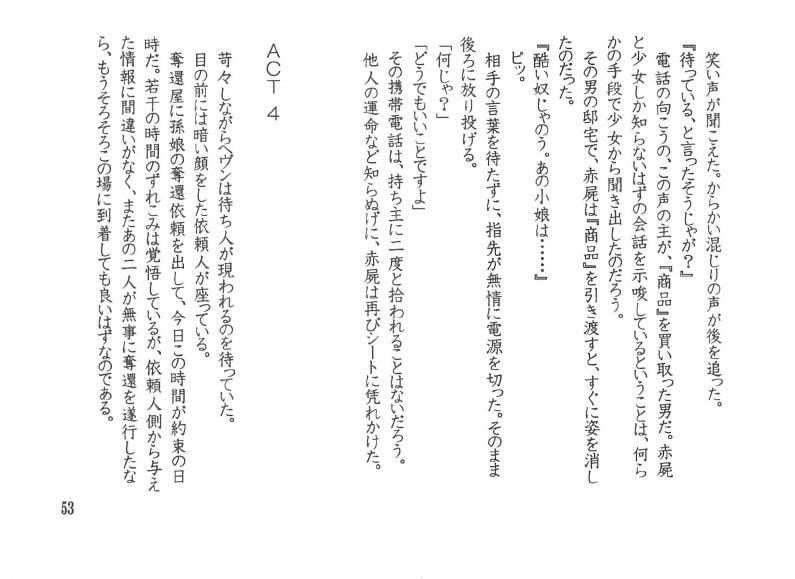 笑い声が聞こえた。からかい混じりの声が後を追った。
『待っている、と言ったそうじゃが？』
電話の向こうの、この声の主が、『商品』を買い取った男だ。赤屍
と少女しか知らないはずの会話を示唆しているということは、何ら
かの手段で少女から聞き出したのだろう。
その男の邸宅で、赤屍は『商品』を引き渡すと、すぐに姿を消し
たのだった。
『酷い奴じゃのう。あの小娘は………』
ピッ。
相手の言葉を待たずに、指先が無情に電源を切った。そのまま
後ろに放り投げる。
「何じゃ？」
「どうでもいいことですよ」
その携帯電話は、持ち主に二度と拾われることはないだろう。
他人の運命など知らぬげに、赤屍は再びシートに凭れかけた。
ACT 4
苛々しながらヘヴンは待ち人が現われるのを待っていた。
目の前には暗い顔をした依頼人が座っている。
奪還屋に孫娘の奪還依頼を出して、今日この時間が約束の日
時だ。若干の時間のずれこみは覚悟しているが、依頼人側から与え
た情報に間違いがなく、またあの二人が無事に奪還を遂行したな
ら、もうそろそろこの場に到着しても良いはずなのである。
53